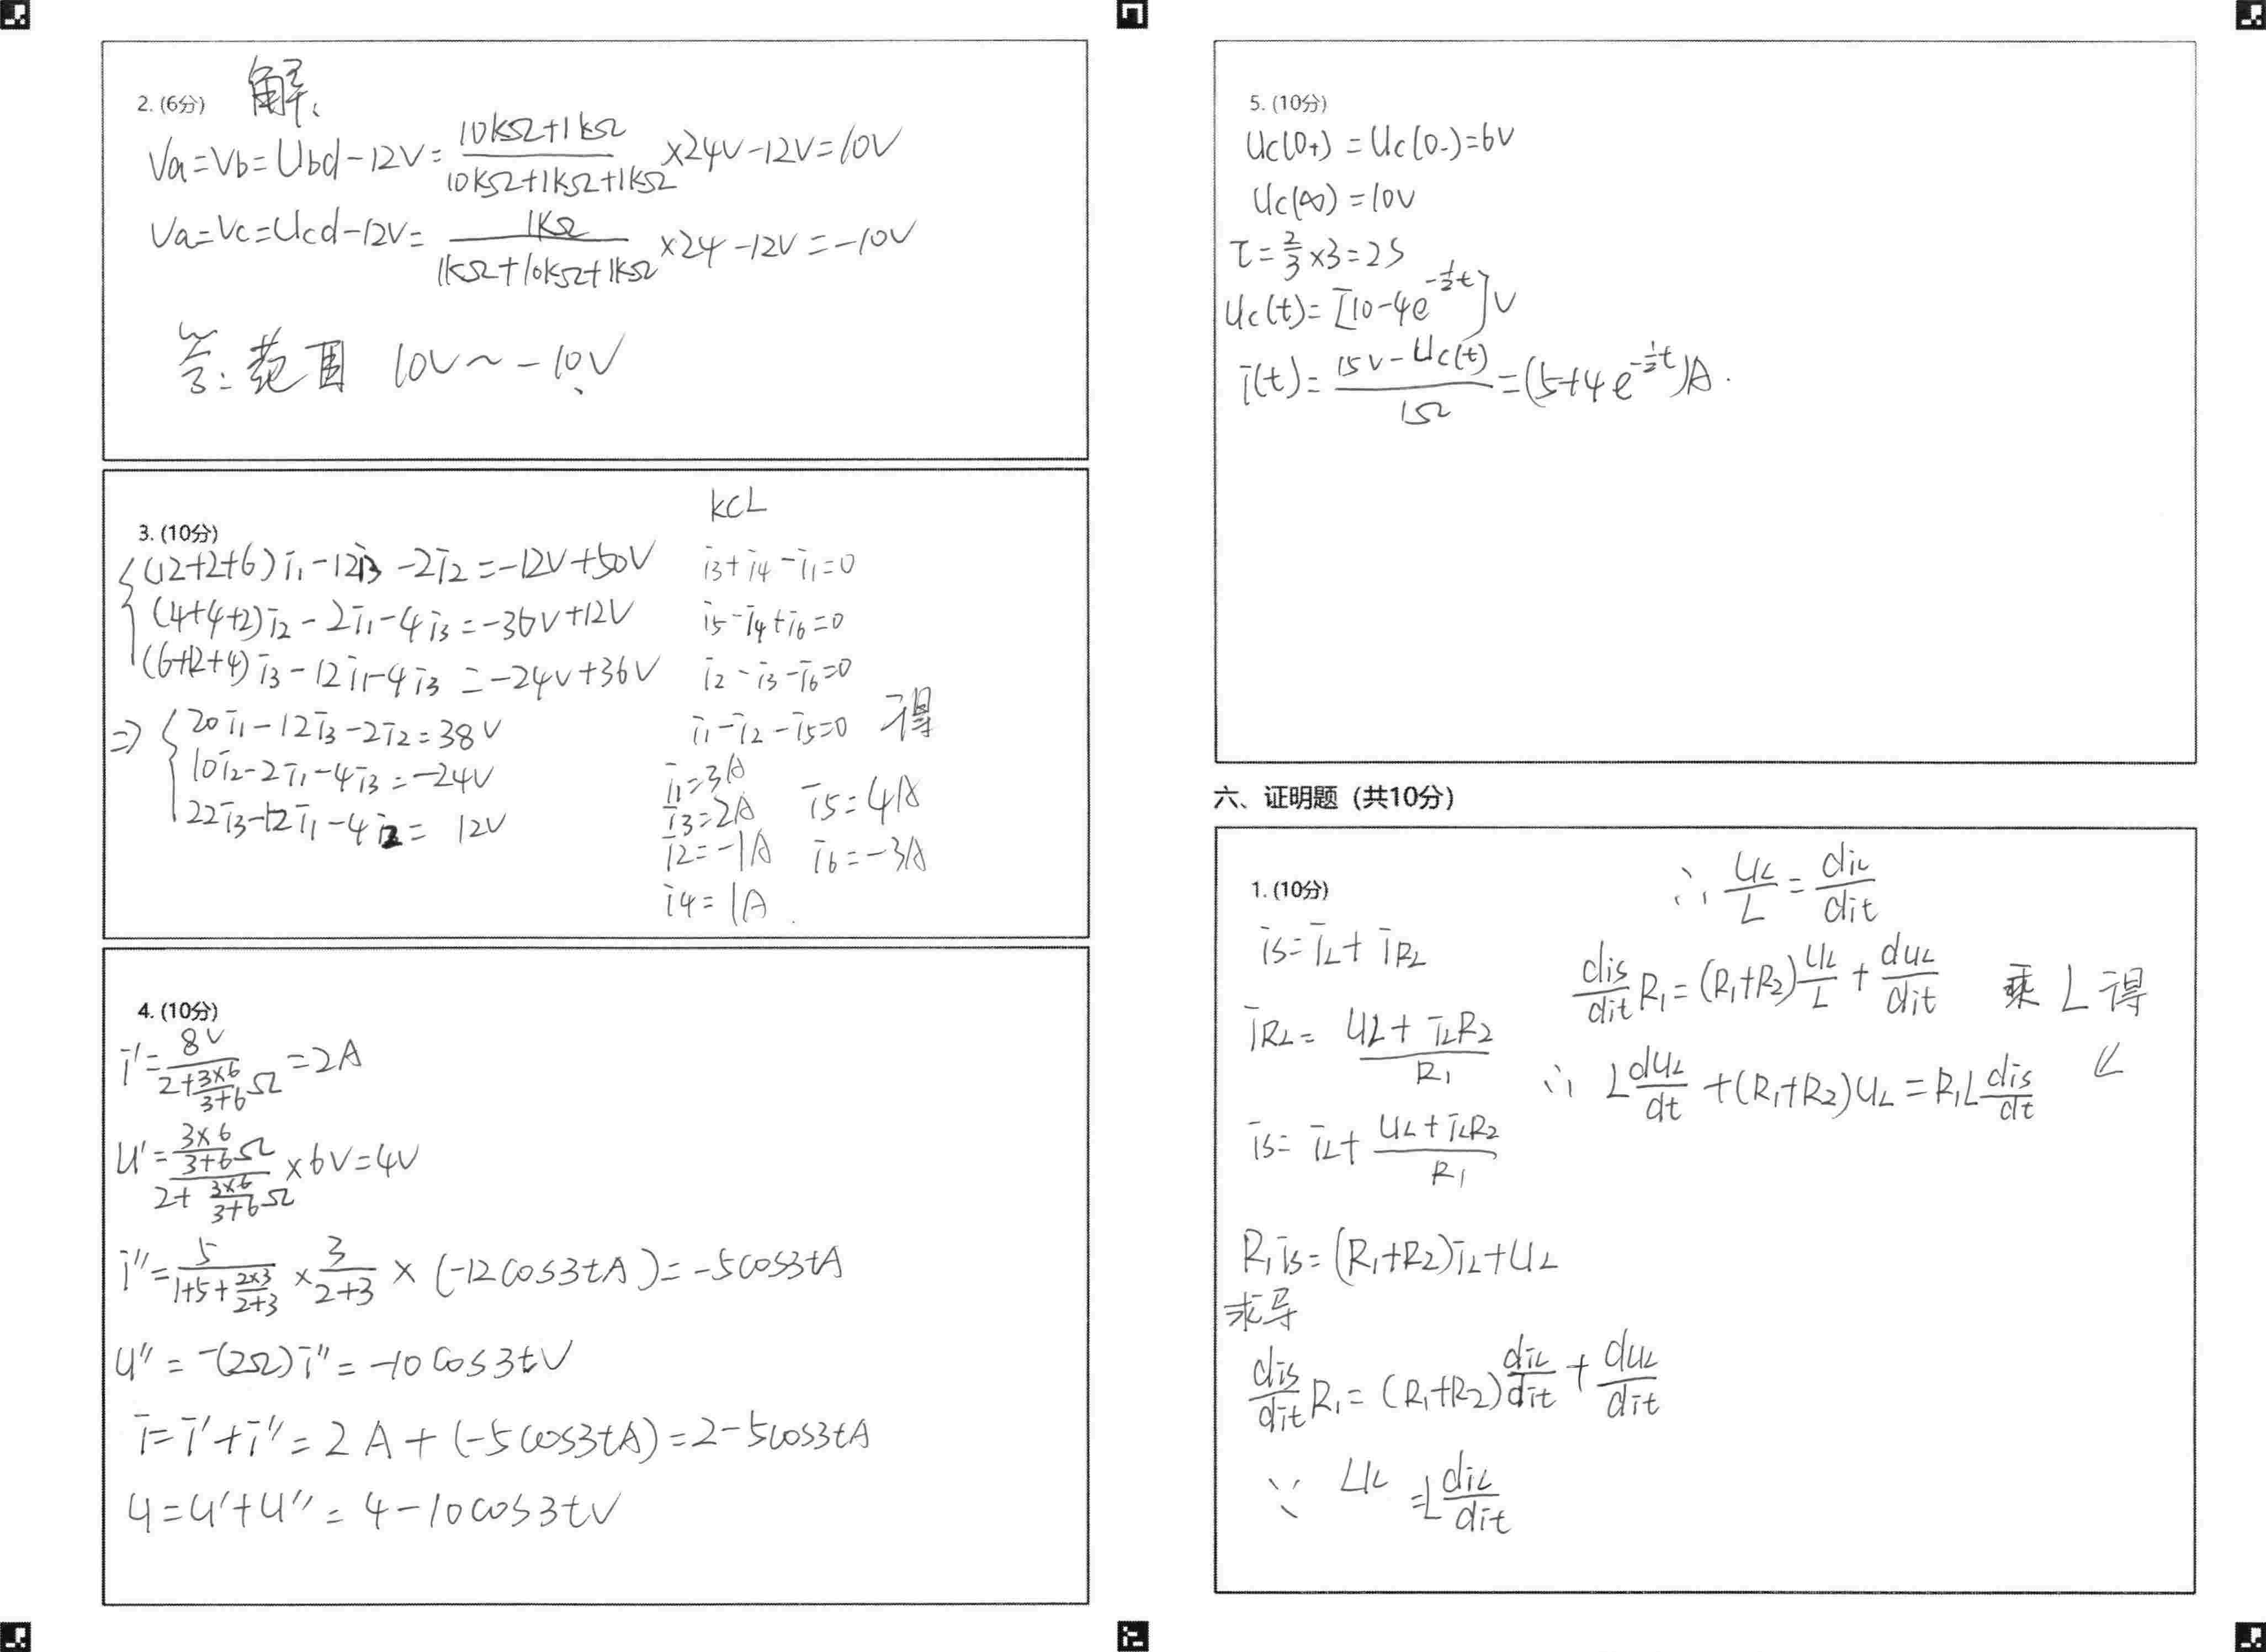 2. (6分) 解、
Va=Vb=Ubd-12V= (10kΩ+1kΩ)/(10kΩ+1kΩ+1kΩ) ×24V-12V=10V
Va=Vc=Ucd-12V= 1kΩ/(1kΩ+10kΩ+1kΩ) ×24-12V=-10V
答: 范围 10V~-10V
3. (10分)
(12+2+6)i1-12i3-2i2=-12V+50V
(4+4+2)i2-2i1-4i3=-36V+12V
(6+12+4)i3-12i1-4i3=-24V+36V
⇒ 20i1-12i3-2i2=38V
10i2-2i1-4i3=-24V
22i3-12i1-4i2=12V
KCL
i3+i4-i1=0
i5-i4+i6=0
i2-i3-i6=0
i1-i2-i5=0 得
i1=3A
i3=2A i5=4A
i2=-1A i6=-3A
i4=1A.
4. (10分)
i'= 8V/(2+(3×6)/(3+6)Ω) =2A
U'= ((3×6)/(3+6)Ω)/(2+(3×6)/(3+6)Ω) ×6V=4V
i''= 5/(1+5+(2×3)/(2+3)) × 3/(2+3) × (-12cos3tA)=-5cos3tA
U''=-(2Ω)i''=-10cos3tV
i=i'+i''=2A+(-5cos3tA)=2-5cos3tA
U=U'+U''=4-10cos3tV
5. (10分)
Uc(0+)=Uc(0-)=6V
Uc(∞)=10V
τ=2/3×3=2S
Uc(t)=[10-4e^(-1/2t)]V
i(t)= (15V-Uc(t))/1Ω =(5+4e^(-1/2t))A.
六、证明题（共10分）
1. (10分)
is=iL+iRL
iRL= (UL+iLR2)/R1
is=iL+ (UL+iLR2)/R1
R1is=(R1+R2)iL+UL
求导
dis/dit R1=(R1+R2) diL/dit + duL/dit
∵ UL=L diL/dit
∴ UL/L = diL/dit
dis/dit R1=(R1+R2) UL/L + duL/dit 乘L得
∴ L duL/dt +(R1+R2)UL=R1L dis/dt ↙